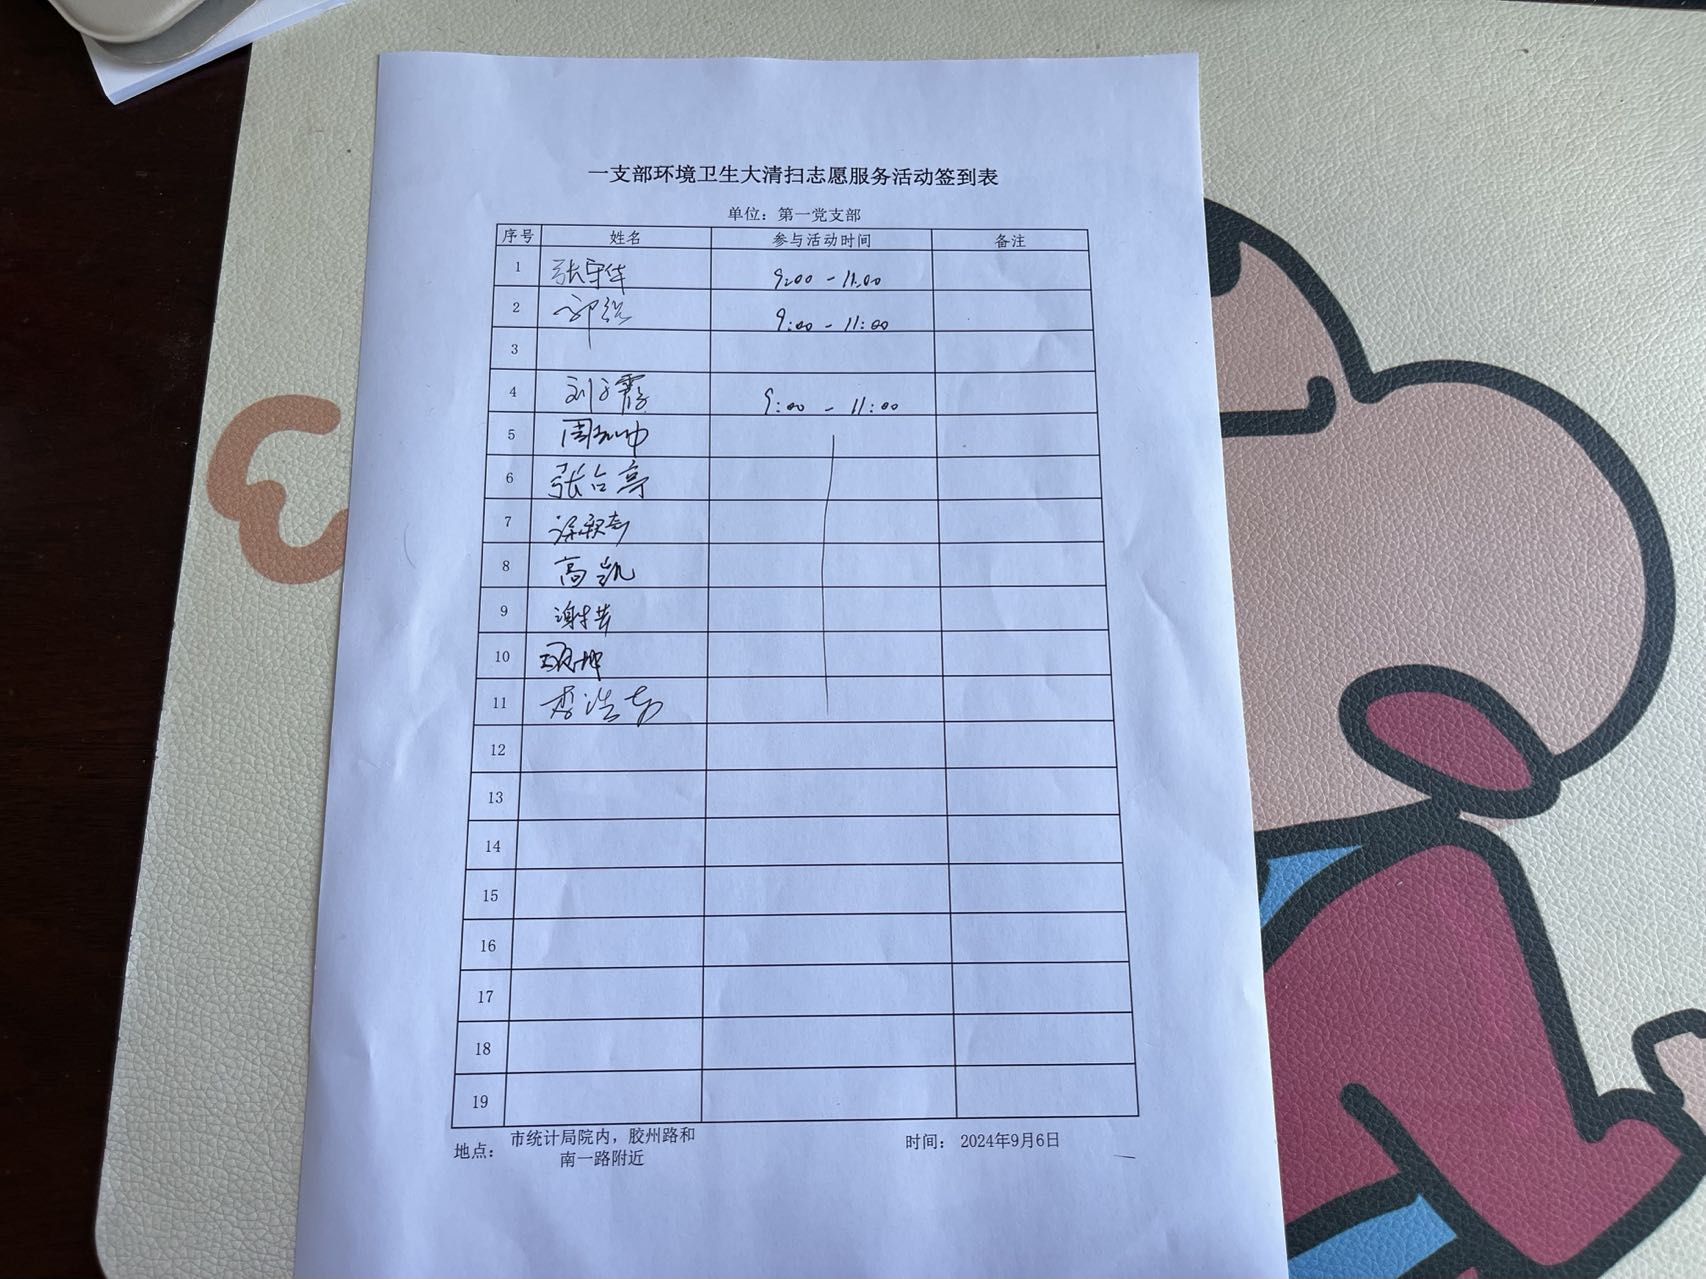 一支部环境卫生大清扫志愿服务活动签到表
单位：第一党支部
序号 姓名 参与活动时间 备注
1 张守华 9:00 - 11:00
2 9:00 - 11:00
3
4 刘子霞 9:00 - 11:00
5
6 张台亭
7
8 高凯
9
10
11 李浩
12
13
14
15
16
17
18
19
地点：市统计局院内，胶州路和
南一路附近
时间：2024年9月6日